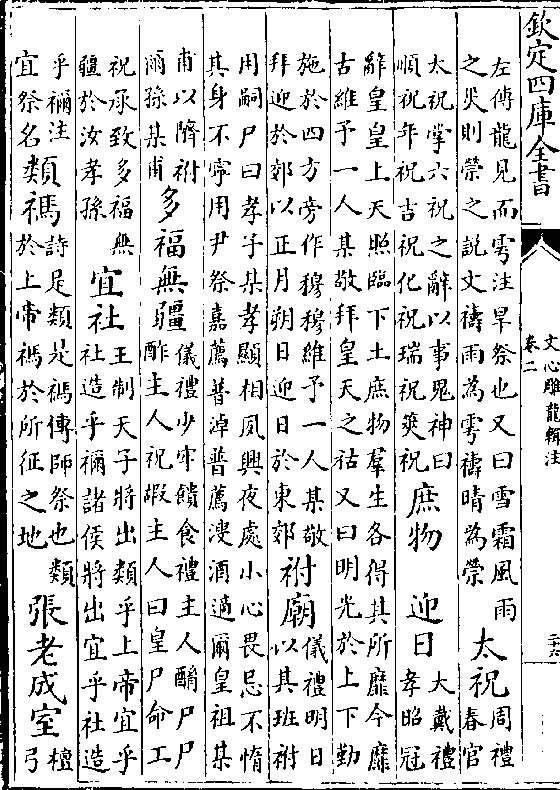 欽定四庫全書
文心雕龍輯注
卷二
二十六
左傳龍見而雩注旱祭也又曰雪霜風雨
之災則禜之說文禱雨為雩禱晴為禜
太祝
周禮
春官
太祝掌六祝之辭以事鬼神曰
順祝年祝吉祝化祝瑞祝筴祝
庶物
迎日
大戴禮
孝昭冠
辭皇皇上天照臨下土庶物羣生各得其所靡今靡
古維予一人某敬拜皇天之祜又曰明光於上下勤
施於四方旁作穆穆維予一人某敬
拜迎於郊以正月朔日迎日於東郊
祔廟
儀禮明日
以其班祔
用嗣尸曰孝子某孝顯相夙興夜處小心畏忌不惰
其身不寧用尹祭嘉薦普淖普薦溲酒適爾皇祖某
甫以隮祔
爾孫某甫
多福無疆
儀禮少牢饋食禮主人酳尸尸
酢主人祝嘏主人曰皇尸命工
祝承致多福無
疆於汝孝孫
宜社
王制天子將出類乎上帝宜乎
社造乎禰諸侯將出宜乎社造
乎禰注
宜祭名
類禡
詩是類是禡傳師祭也類
於上帝禡於所征之地
張老成室
檀
弓